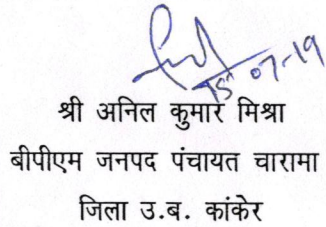 15-07-19
श्री अनिल कुमार मिश्रा
बीपीएम जनपद पंचायत चारामा
जिला उ.ब. कांकेर